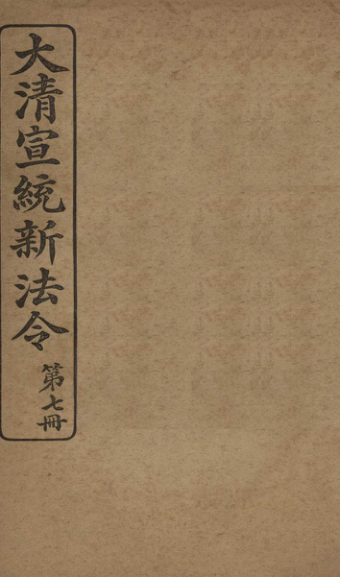 大清宣統新法令
第七冊